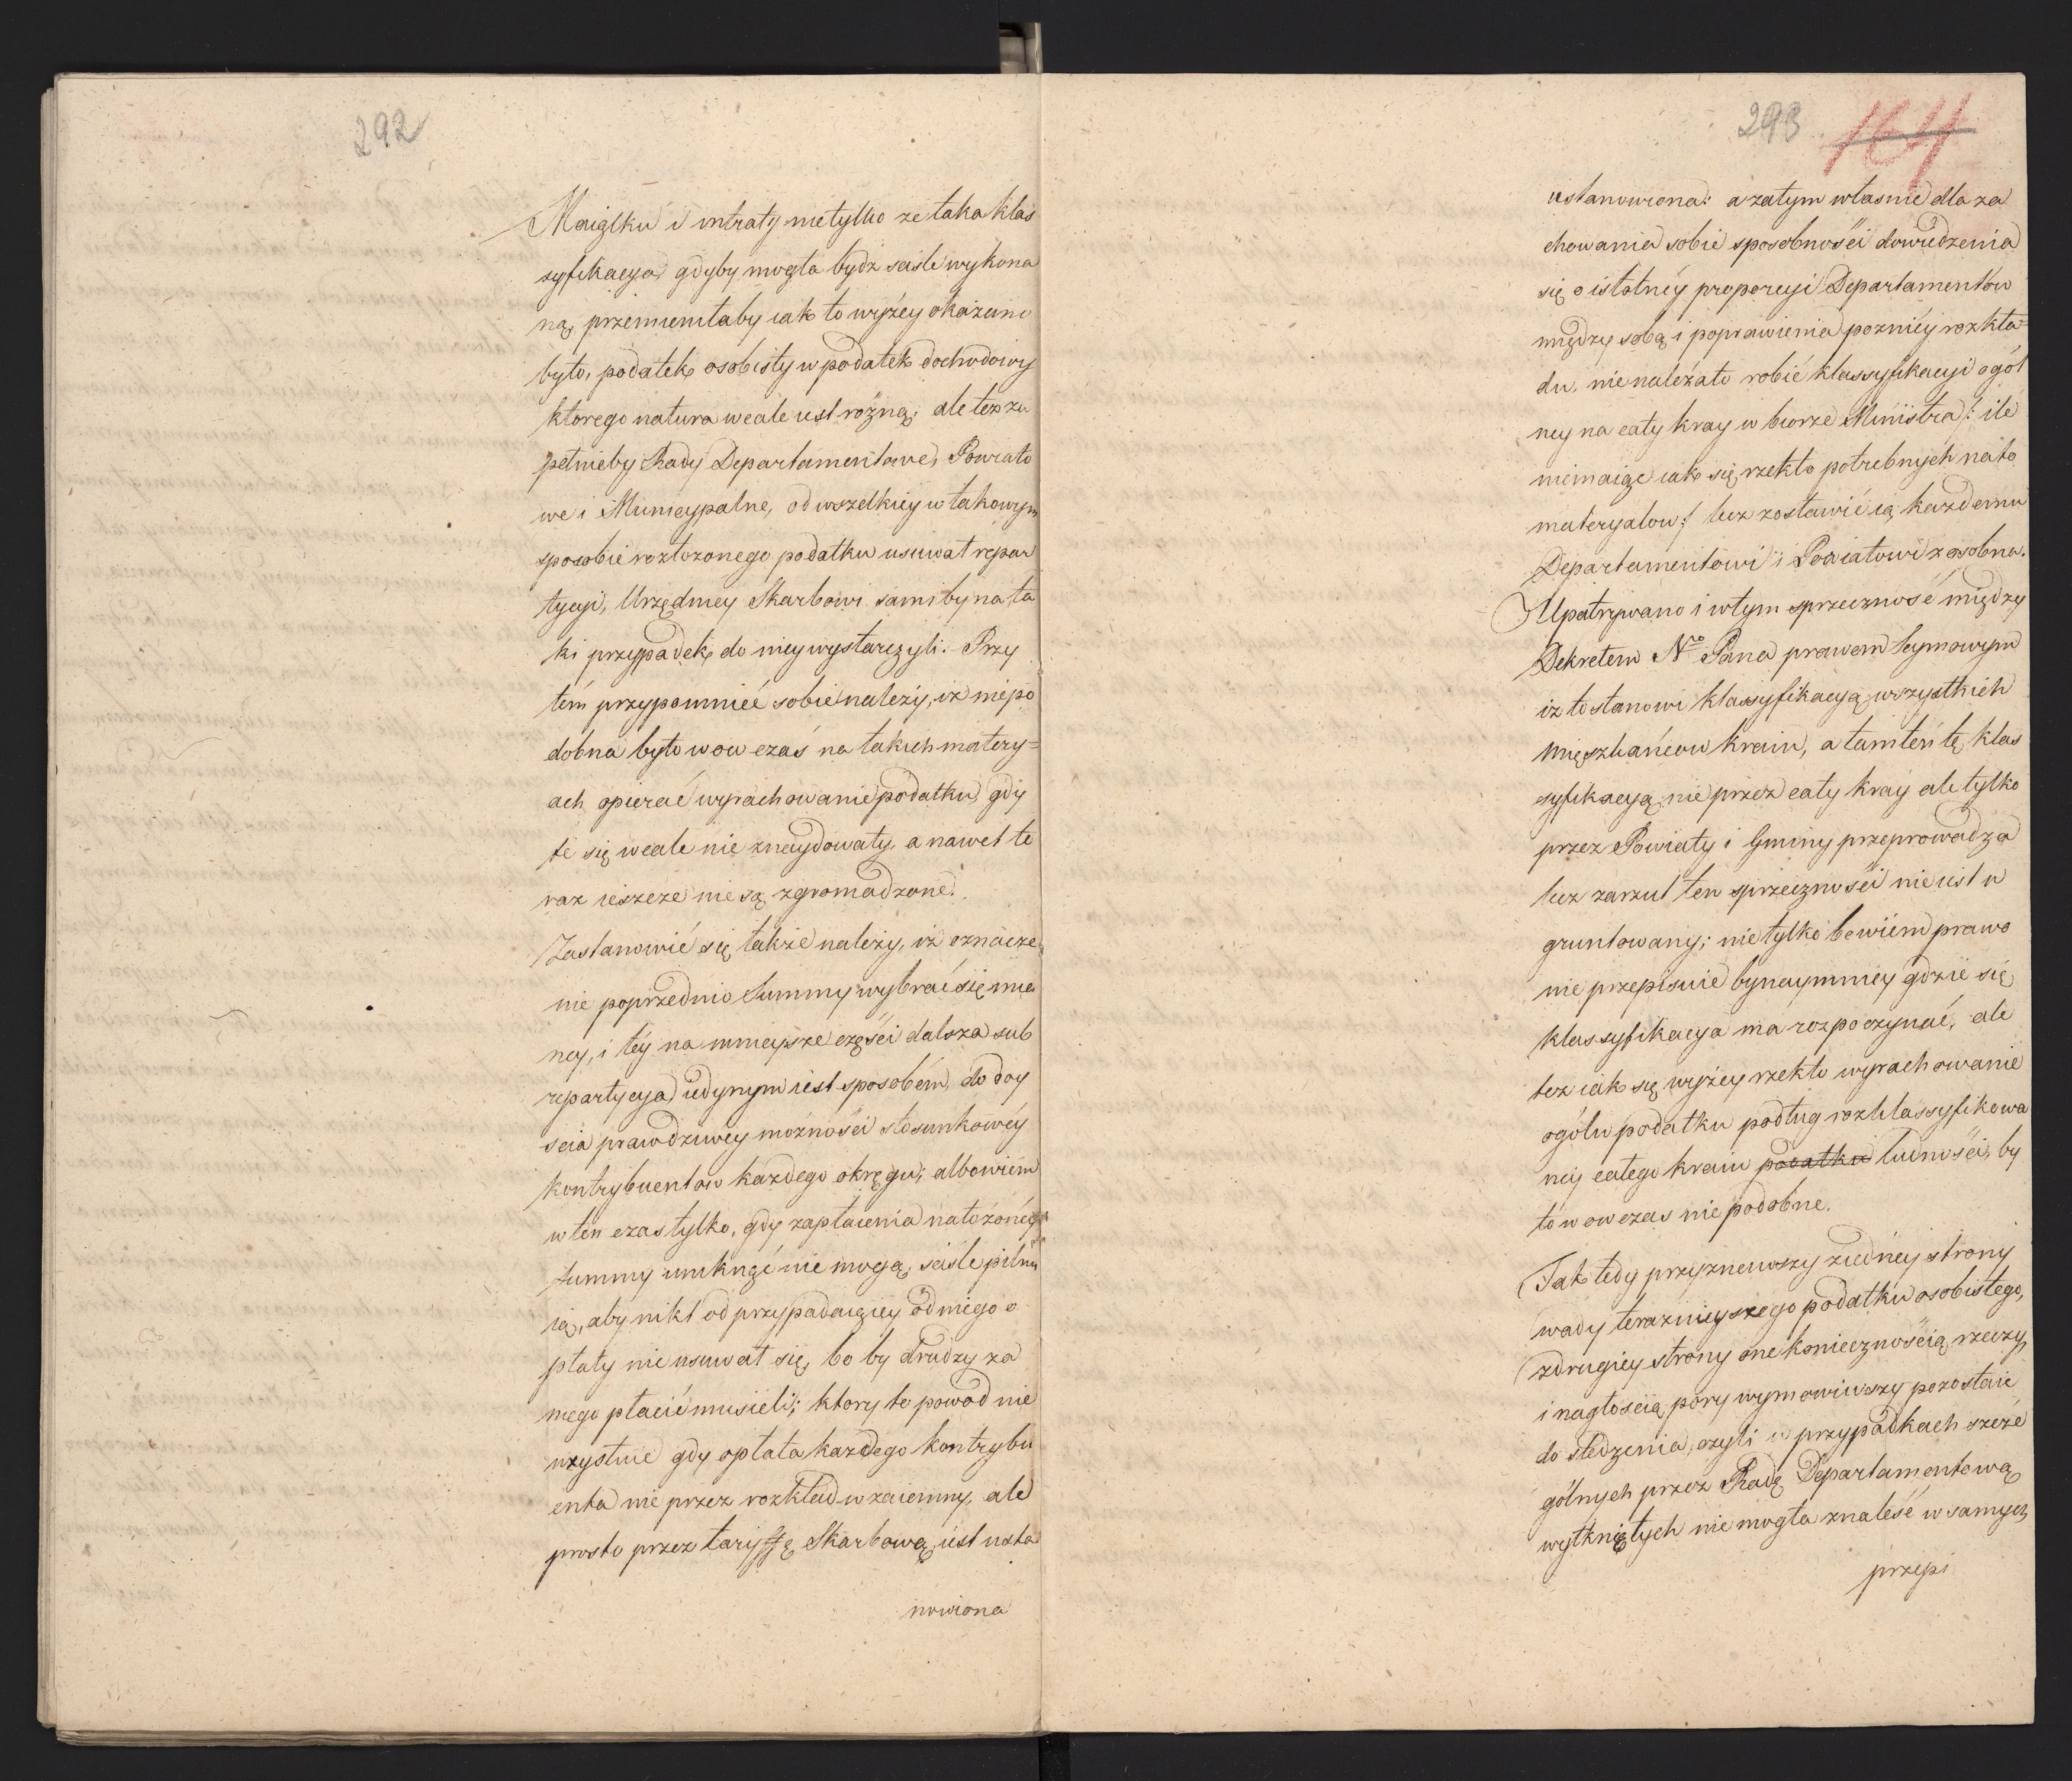 292
Maiątku i intraty nietylko ze taka klas
syfikacya, gdyby mogła bydz scisle wykona
ną, przemieniłaby iak to wyżey okazano
było, podatek osobisty w podatek dochodowy
ktorego natura wcale iest rożną; ale też zu
pełnieby Rady Departamentowe, Powiato
we i Municypalne, od wszelkiey w takowym
sposobie rozłożonego podatku usuwał repar
tycyi, Urzędnicy Skarbowi sami by na ta
ki przypadek do niey wystarczyli. Przy
tém przypomnieć sobie należy, iż niepo
dobna było wow czas na takich matery=
ach opierać wyrachowanie podatku, gdy
te się wcale nie znaydowały, a nawet te
raz ieszcze nie są zgromadzone.
Zastanowić się także należy, iż oznacze
nie poprzednio Summy wybrać się maią
ney, i téy na mnieysze części dalsza sub
repartycya iedynym iest sposobém do doy
scia prawdziwey możności stosunkowéy
kontrybuentow każdego okręgu; albowiém
w ten czas tylko, gdy zapłacenia nałożonéy
summy uniknąć nie mogą, scisle pilnu
ią, aby nikt od przypadaiącey od niego o
płaty nie usuwał się, bo by drudzy za
niego płacić musieli; ktory to powod nie
uzystuie gdy opłata każdego kontrybu
enta nie przez rozkład wzaiemny, ale
prosto przez taryffę Skarbową iest usta
nowiona
293 164
ustanowiona: a zatym własnie dla za
chowania sobie sposobności dowiedzenia
się o istotnéy proporcyi Departamentów
między sobą i poprawienia pozniéy rozkła=
du, nie należało robić klassyfikacyi ogól
ney na cały kray w biorze Ministra /: ile
niemaiąc iak się rzekło potrzebnych na to
materyałow :/ lecz zostawić ią każdemu
Departamentowi i Powiatowi z osobna.
Upatrywano i w tym sprzeczność między
Dekretem Nro Pana prawem Seymowym
iż to stanowi klassyfikacyą wszystkich
Mięszkańcow kraiu, a tamten tę klas
syfikacyą nie przez cały kray ale tylko
przez Powiaty i Gminy przeprowadza
lecz zarzut ten sprzeczności nie iest u
gruntowany; nie tylko bowiém prawo
nie przepisuie bynaymniey gdzie się
klassyfikacya ma rozpoczynać, ale
też iak się wyżey rzekło wyrachowanie
ogółu podatku podług rozklassyfikowa
néy całego kraiu podatku ludności, by
ło w ow czas nie podobne.
Tak tedy przyznawszy ziedney strony
wady teraznieyszego podatku osobistego,
zdrugiey strony one koniecznością rzeczy
i nagłością pory wymowiwszy pozostaie
do sledzenia, czyli w przypadkach szcze
gólnych przez Radę Departamentową
wytkniętych nie mogła znaleść w samych
przepi